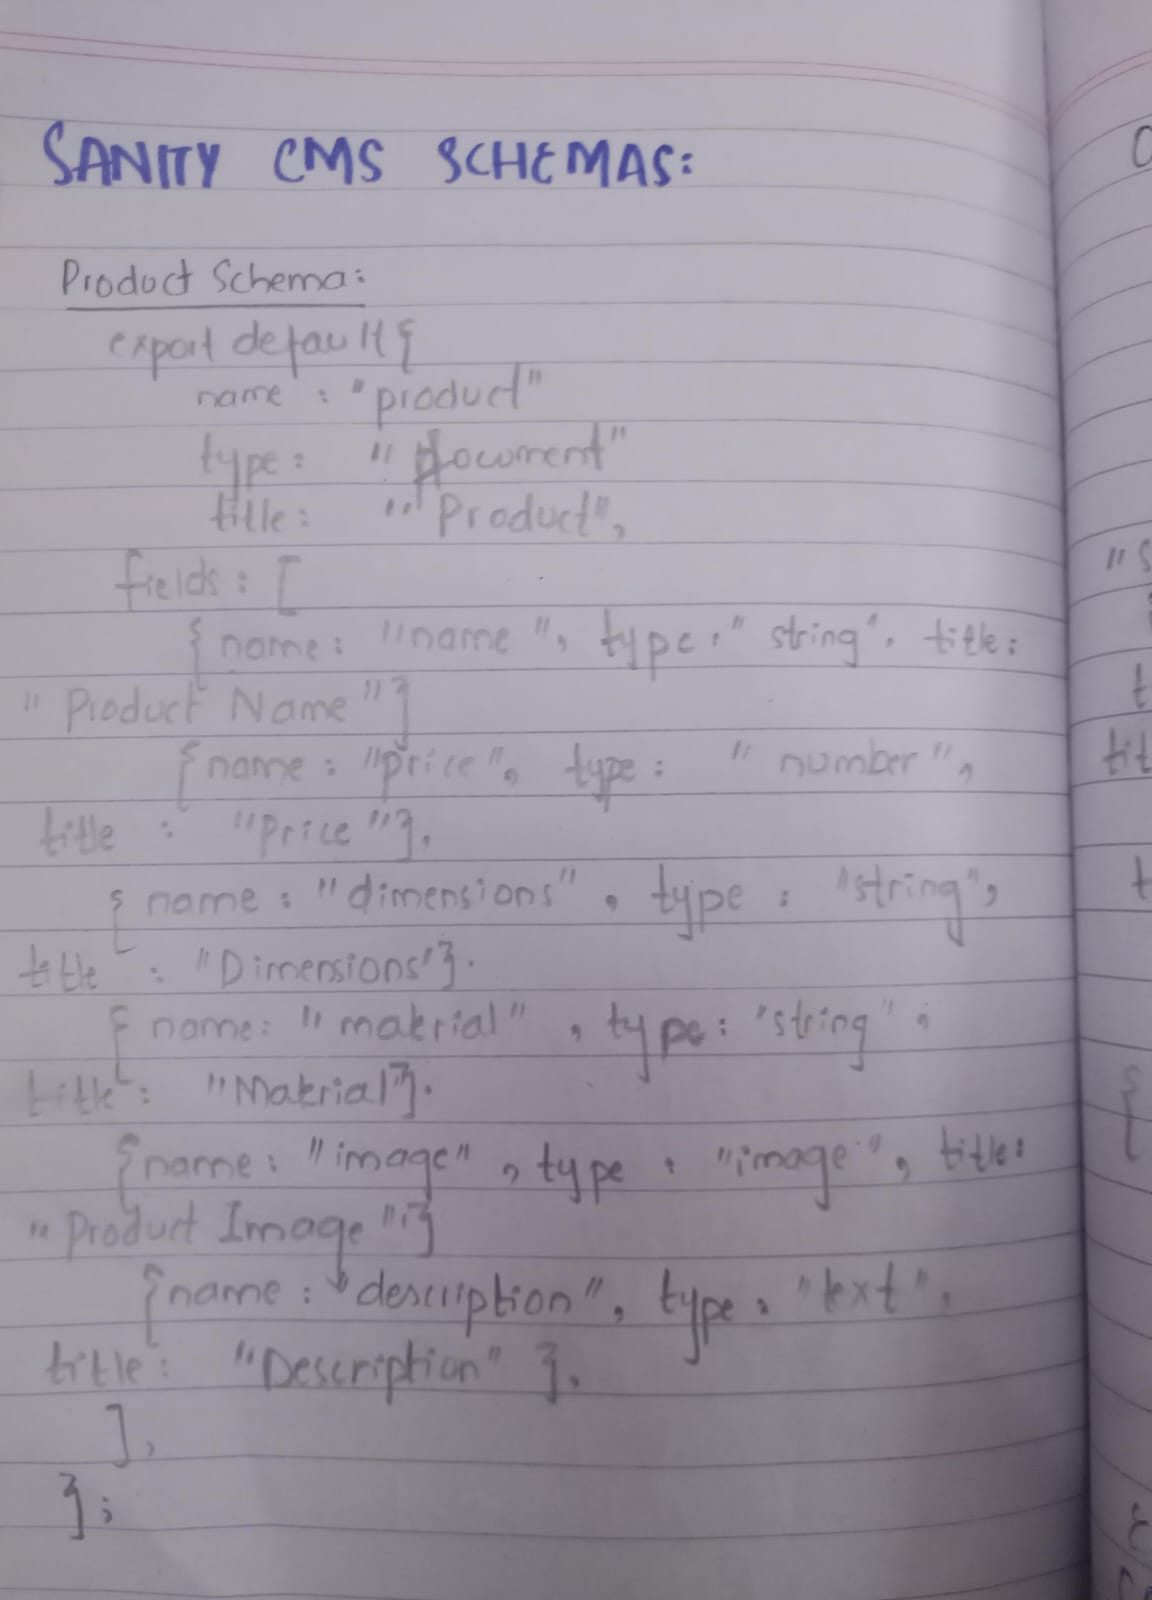 SANITY CMS SCHEMAS:
Product Schema:
export default {
name : "product"
type : "document"
title : "Product",
fields : [
{ name : "name", type : "string", title :
"Product Name"}
{ name : "price", type : "number",
title : "Price"},
{ name : "dimensions", type : "string",
title : "Dimensions"}.
{ name : "material", type : "string",
title : "Material"}.
{ name : "image", type : "image", title :
"Product Image"}
{ name : "description", type : "text",
title : "Description" },
],
};